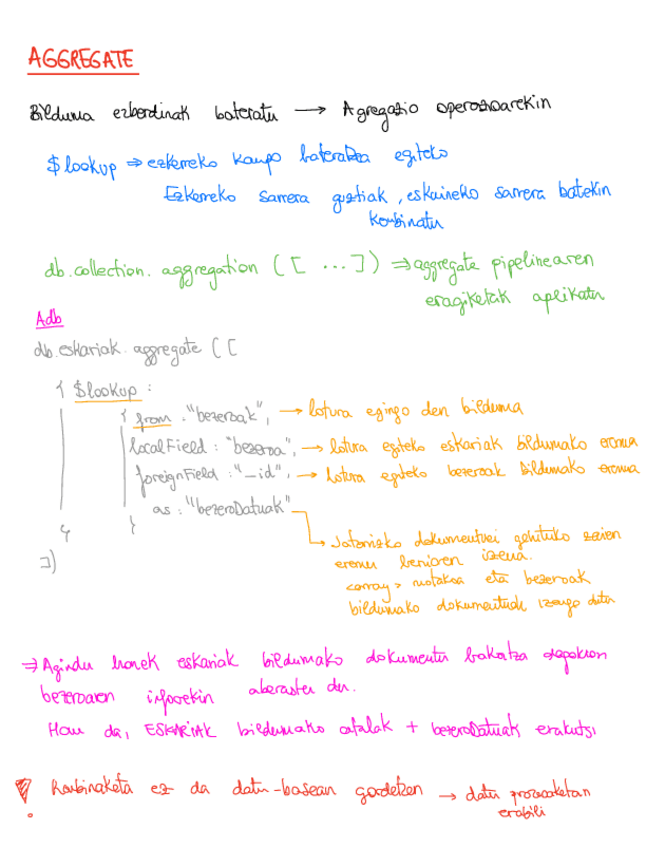 AGGREGATE
Bilduma ezberdinak bateratu → Agregazio operazioarekin
$lookup ⇒ ezkerreko kanpo bateratzea egiteko
Ezkerreko sarrera guztiak, eskuineko sarrera batekin
konbinatu
db.collection.aggregation ([ ... ]) ⇒ aggregate pipelinearen
eragiketak aplikatu
Adb
db.eskariak.aggregate ([
{ $lookup :
{ from : "bezeroak", → lotura egingo den bilduma
localField : "bezeroa", → lotura egiteko eskariak bildumako eremua
foreignField : "_id", → lotura egiteko bezeroak bildumako eremua
as : "bezeroDatuak"
} }
→ Jatorrizko dokumentuei gehituko zaien
])
eremu berriaren izena.
<array> motakoa eta bezeroak
bildumako dokumentuak izango ditu
⇒ Agindu honek eskariak bildumako dokumentu bakoitza dagokion
bezeroaren infoarekin aberasten du.
Hau da, ESKARIAK bildumako atalak + bezeroDatuak erakutsi
! Konbinaketa ez da datu-basean gordetzen → datu prozesaketan
erabili